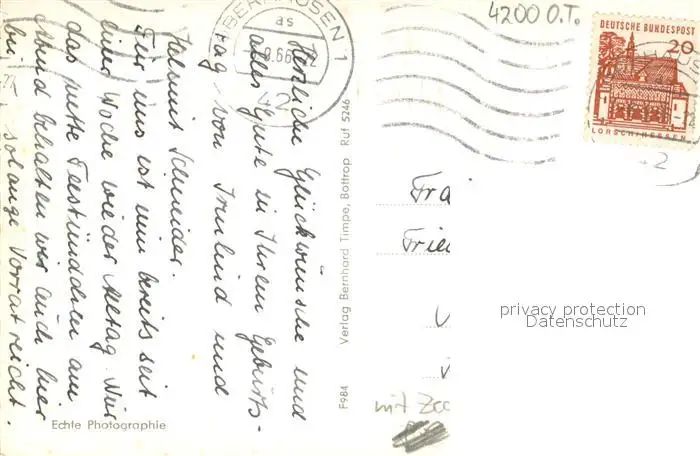 Herzliche Glückwünsche und
alles Gute zu Ihrem Geburts-
tag, von Irmlind und
Helmut Schneider.
Für uns ist nun bereits seit
einer Woche wieder Alltag. Nur
das nette Teestündchen am
Abend behalten wir auch hier
bei, solange Vorrat reicht.
Echte Photographie
F984
Verlag Bernhard Timpe, Bottrop Ruf 5246
OBERHAUSEN 1
as
4200 O.T.
DEUTSCHE BUNDESPOST
20
LORSCH/HESSEN
2
Fra
Frie
privacy protection
Datenschutz
mit Zoo